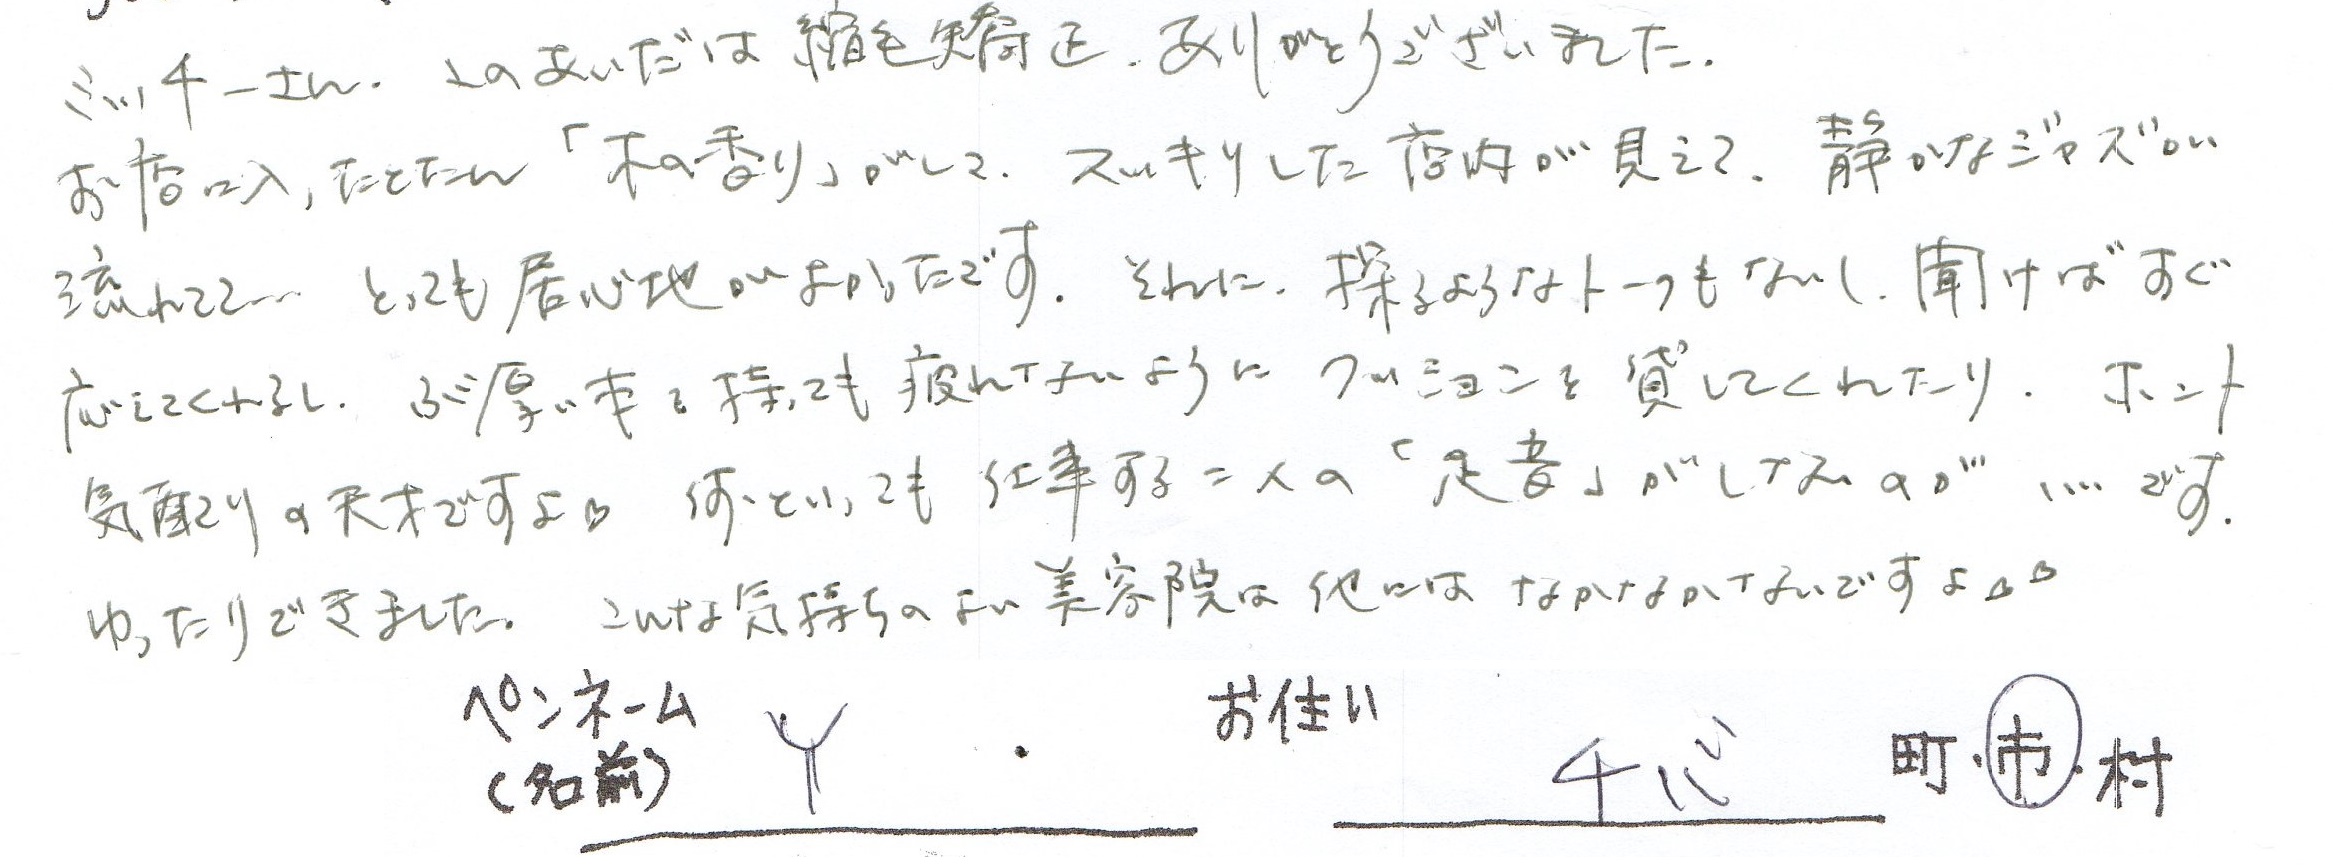 ミッチーさん. このあいだは縮毛矯正. ありがとうございました.
お店に入ったとたん「木の香り」がして. スッキリした店内が見えて. 静かなジャズが
流れてて… とっても居心地がよかったです. それに. 探るようなトークもないし. 聞けばすぐ
応えてくれるし. ぶ厚い本を持っても疲れないように クッションを貸してくれたり. ホント
気配りの天才ですよ 何といっても 仕事する二人の「足音」がしないのが いいです.
ゆったりできました. こんな気持ちのよい美容院は他にはなかなかないですよ
ペンネーム (名前) Y お住い チバ 町・市・村